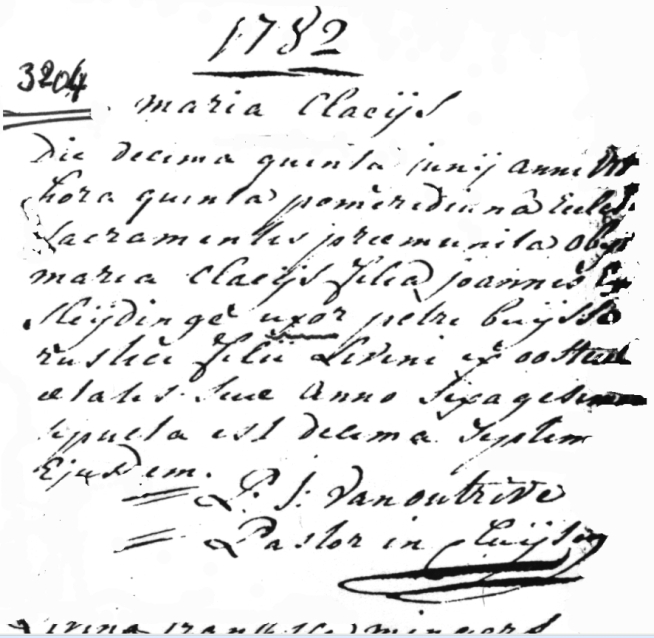 1782
3204
Maria Claeijs
Die decima quinta junij anni
hora quinta pomeridianâ
sacramentis præmunita obijt
maria Claeijs filia joannis
Sleijdinge uxor petri buijsse
rustici filii Livini ex
ætatis suæ anno sexagesimo
sepulta est decima septima
Ejusdem.
P. J. Vanoutrive
Pastor in